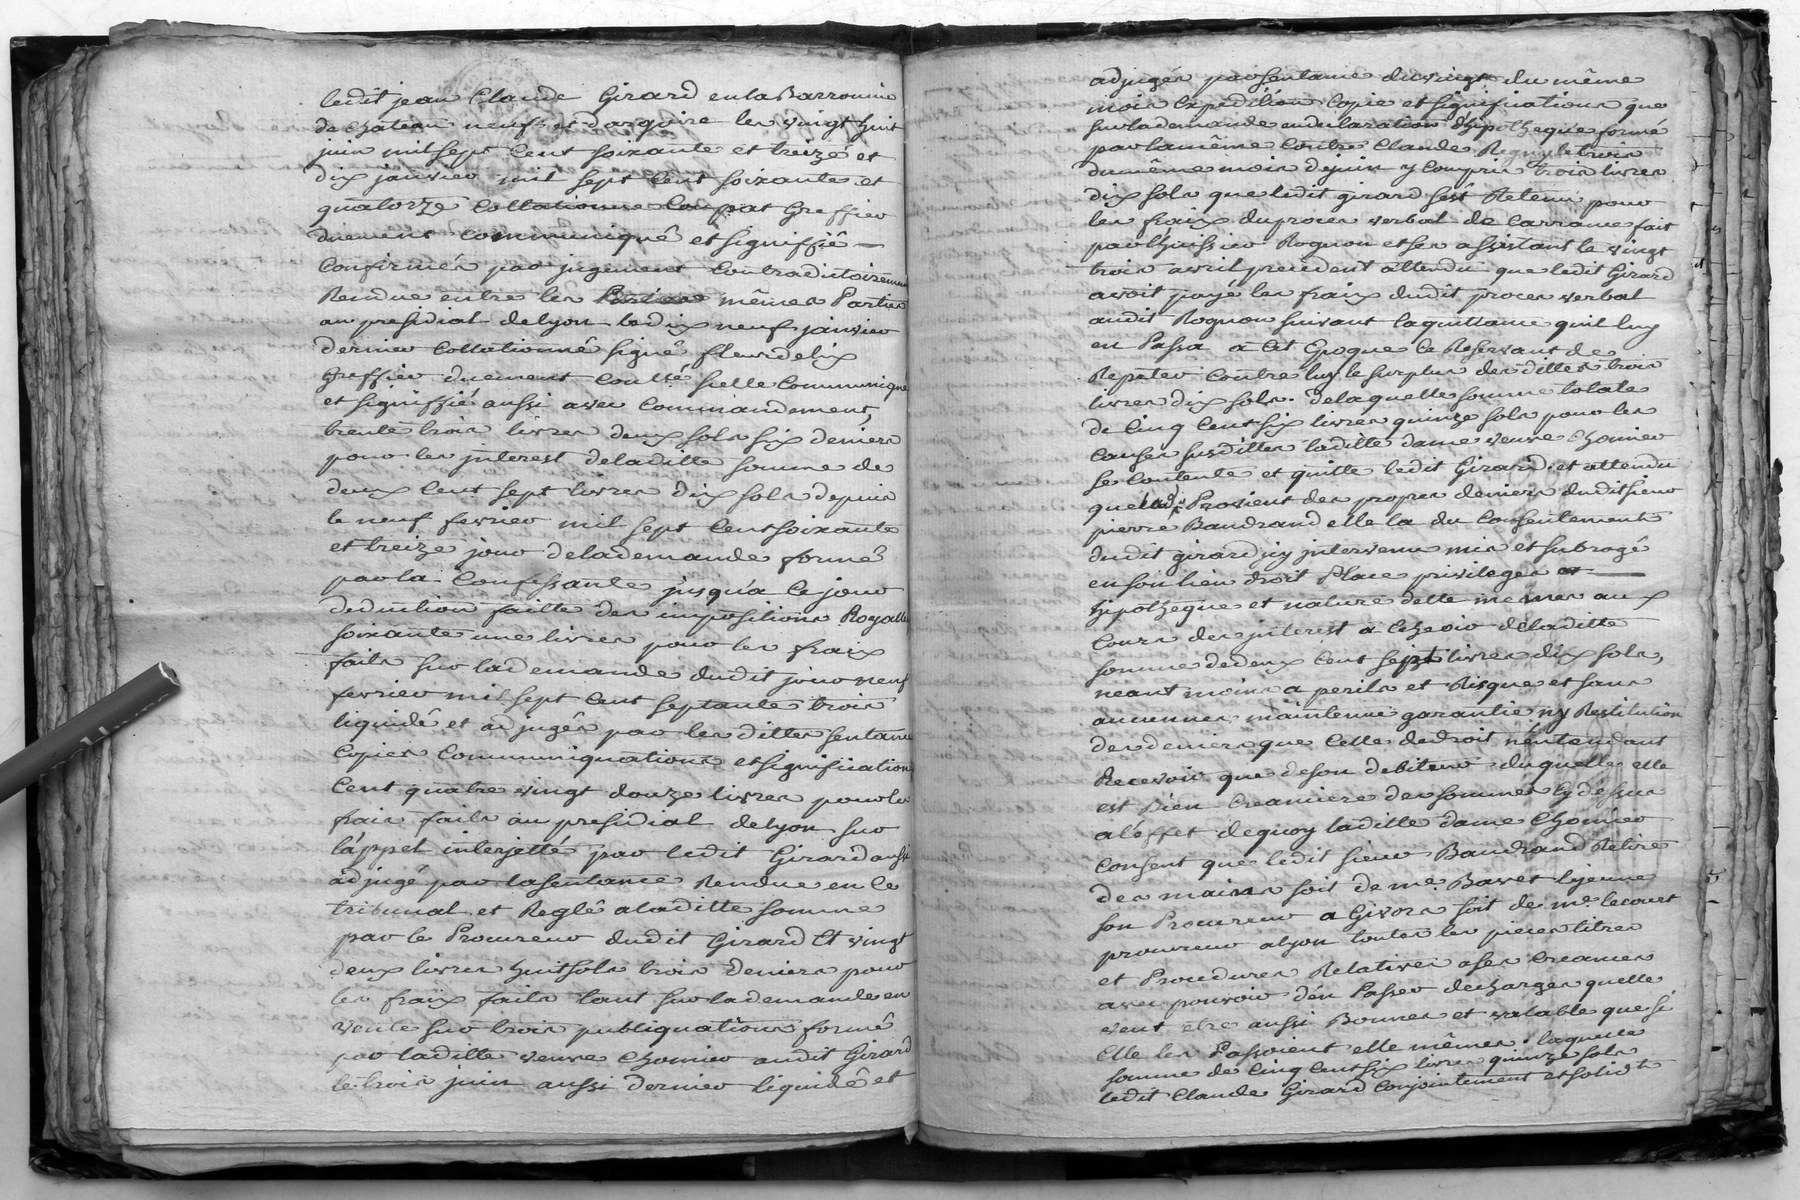 ledit jean Claude Girard en la Barronnie
de chateau neuf et dargoire les vingt huit
juin mil sept cent soixante et treize et
dix janvier mil sept cent soixante et
quatorze Collationne Coupat Greffier
duement communiqué et signiffié —
Confirmés par jugement Contradictoirement
Rendue entre les mêmes Parties
au presidial delyon le dix neuf janvier
dernier Collationné signé fleurdelix
Greffier duement Communiqué
et signiffié aussi avec Commandement
trente trois livres deux sols six deniers
pour les jnterest deladitte somme de
deux Cent sept livres dix sols depuis
le neuf fevrier mil sept Cent soixante
et treize jour delademande formé
par la Confessante jusqu'a Ce jour
deduction faitte des impositions Royalles
soixante une livres pour les fraix
faits sur lademande dudit jour neuf
fevrier mil sept Cent septante trois
liquidé et adjugés par les dittes sentances
Copies Communiquations et signification
Cent quatre vingt douze livres pour les
frais faits au presidial delyon sur
l'appel interjetté par ledit Girard aussi
adjugé par lasentance Rendue en Ce
tribunal et Reglé aladitte somme
par le Procureur dudit Girard Et vingt
deux livres huit sols trois deniers pour
les fraix faits tant sur lademande en
vente sur trois publiquations formé
par laditte veuve Chomier audit Girard
le trois juin aussi dernier liquidé et
adjugés par sentance du vingt du même
mois Expedition Copie et significations que
sur lademande endeclaration d'hipotheque formé
par lamême Contre Claude Regny le trois
dumême mois dejuin y Compris trois livres
dix sols que ledit girard sest Retenu pour
les fraix du proces verbal de Carrance fait
par lhuissier Rognon et ses assistant le vingt
trois avril precedent attendu que ledit Girard
avoit payé les fraix dudit proces verbal
audit Rognon suivant laquittance quil luy
en Passa a Cet Epoque se Reservant de
Repeter Contre luy le surplus des dittes trois
livres dix sols. delaquelle somme totale
de Cinq Cent six livres quinze sols pour les
Causes susdittes laditte dame veuve Chomier
se Contente et quitte ledit Girard. et attendu
quelle Provient des propres deniers dudit sieur
pierre Baudrand elle la du Consentement
dudit girard icy jntervenu mis et subrogé
en son lieu droit Place privileges
hipotheque et nature dette mesmes aux
Cours des jnterest a Echeoir deladitte
somme dedeux Cent sept livres dix sols,
néant moins a perils et Risque et sans
aucunnes maintenue garantie ny Restitution
des deniers que Celle dedroit n'entendant
Recevoir que deson debiteur duquelle elle
est Bien Creanciere des sommes Cy dessus
a l'effet dequoy laditte dame Chomier
Consent que ledit sieur Baudrand Retire
des mains soit de me. Bavet lejeune
son Procureur a Givors soit de me. lecourt
procureur alyon touttes les pieces titres
et Procedures Relatives a ses Creances
avec pouvoir d'en Passer decharges quelle
veut etre aussi Bonnes et valable que si
Elle les Passoient elle mêmes. laquelle
somme de Cinq Cent six livres quinze sols
ledit Claude Girard Conjointement et solidt